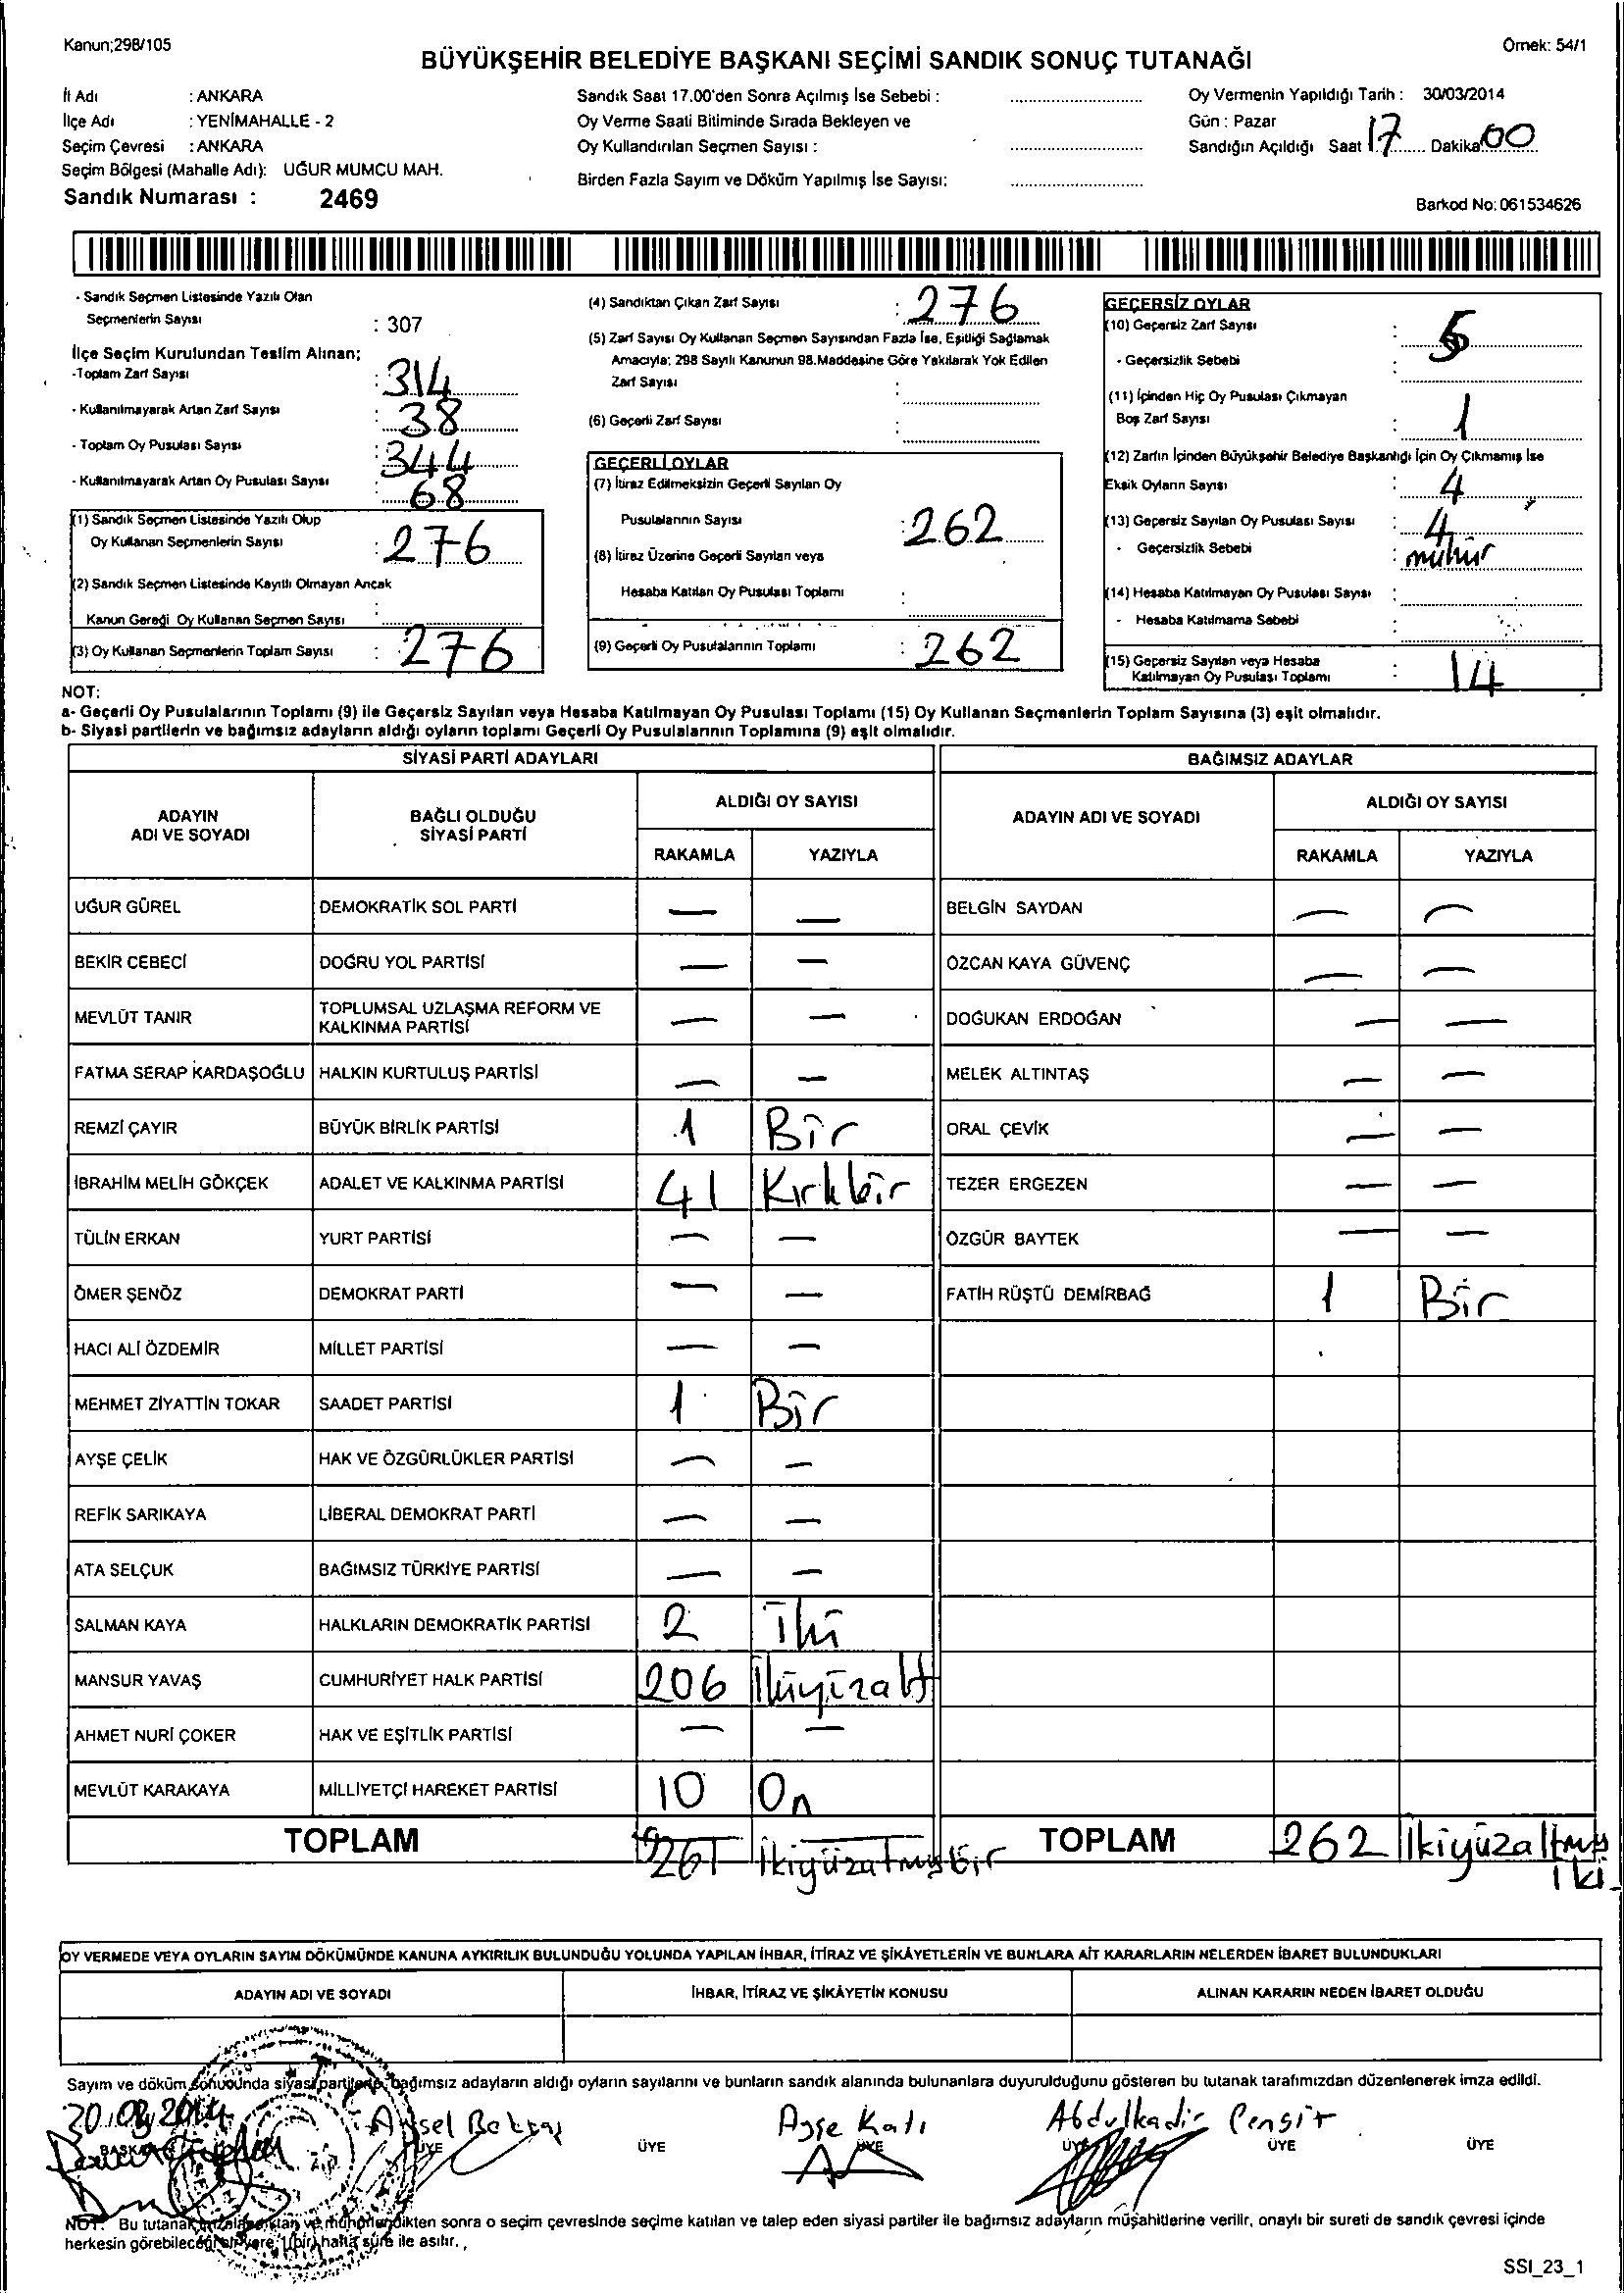 Kanun;298/105
Örnek: 54/1
BÜYÜKŞEHİR BELEDİYE BAŞKANI SEÇİMİ SANDIK SONUÇ TUTANAĞI
İl Adı : ANKARA
İlçe Adı : YENİMAHALLE - 2
Seçim Çevresi : ANKARA
Seçim Bölgesi (Mahalle Adı): UĞUR MUMCU MAH.
Sandık Numarası : 2469
Sandık Saat 17.00'den Sonra Açılmış İse Sebebi :
Oy Verme Saati Bitiminde Sırada Bekleyen ve
Oy Kullandırılan Seçmen Sayısı :
Birden Fazla Sayım ve Döküm Yapılmış İse Sayısı:
Oy Vermenin Yapıldığı Tarih : 30/03/2014
Gün : Pazar
Sandığın Açıldığı Saat 17 Dakika 00
Barkod No: 061534626
- Sandık Seçmen Listesinde Yazılı Olan
Seçmenlerin Sayısı : 307
İlçe Seçim Kurulundan Teslim Alınan;
-Toplam Zarf Sayısı : 314
- Kullanılmayarak Artan Zarf Sayısı : 38
- Toplam Oy Pusulası Sayısı : 344
- Kullanılmayarak Artan Oy Pusulası Sayısı : 68
(1) Sandık Seçmen Listesinde Yazılı Olup
Oy Kullanan Seçmenlerin Sayısı : 276
(2) Sandık Seçmen Listesinde Kayıtlı Olmayan Ancak
Kanun Gereği Oy Kullanan Seçmen Sayısı :
(3) Oy Kullanan Seçmenlerin Toplam Sayısı : 276
(4) Sandıktan Çıkan Zarf Sayısı : 276
(5) Zarf Sayısı Oy Kullanan Seçmen Sayısından Fazla İse, Eşitliği Sağlamak
Amacıyla; 298 Sayılı Kanunun 98.Maddesine Göre Yakılarak Yok Edilen
Zarf Sayısı :
(6) Geçerli Zarf Sayısı :
GEÇERLİ OYLAR
(7) İtiraz Edilmeksizin Geçerli Sayılan Oy
Pusulalarının Sayısı : 262
(8) İtiraz Üzerine Geçerli Sayılan veya
Hesaba Katılan Oy Pusulası Toplamı :
(9) Geçerli Oy Pusulalarının Toplamı : 262
GEÇERSİZ OYLAR
(10) Geçersiz Zarf Sayısı : 5
- Geçersizlik Sebebi :
(11) İçinden Hiç Oy Pusulası Çıkmayan
Boş Zarf Sayısı : 1
(12) Zarfın İçinden Büyükşehir Belediye Başkanlığı İçin Oy Çıkmamış İse
Eksik Oyların Sayısı : 4
(13) Geçersiz Sayılan Oy Pusulası Sayısı : 4
- Geçersizlik Sebebi : mühür
(14) Hesaba Katılmayan Oy Pusulası Sayısı :
- Hesaba Katılmama Sebebi :
(15) Geçersiz Sayılan veya Hesaba
Katılmayan Oy Pusulası Toplamı : 14
NOT:
a- Geçerli Oy Pusulalarının Toplamı (9) ile Geçersiz Sayılan veya Hesaba Katılmayan Oy Pusulası Toplamı (15) Oy Kullanan Seçmenlerin Toplam Sayısına (3) eşit olmalıdır.
b- Siyasi partilerin ve bağımsız adayların aldığı oyların toplamı Geçerli Oy Pusulalarının Toplamına (9) eşit olmalıdır.
SİYASİ PARTİ ADAYLARI BAĞIMSIZ ADAYLAR
ADAYIN ADI VE SOYADI BAĞLI OLDUĞU SİYASİ PARTİ ALDIĞI OY SAYISI ADAYIN ADI VE SOYADI ALDIĞI OY SAYISI
RAKAMLA YAZIYLA RAKAMLA YAZIYLA
UĞUR GÜREL DEMOKRATİK SOL PARTİ — — BELGİN SAYDAN — —
BEKİR CEBECİ DOĞRU YOL PARTİSİ — — ÖZCAN KAYA GÜVENÇ — —
MEVLÜT TANIR TOPLUMSAL UZLAŞMA REFORM VE KALKINMA PARTİSİ — — DOĞUKAN ERDOĞAN — —
FATMA SERAP KARDAŞOĞLU HALKIN KURTULUŞ PARTİSİ — — MELEK ALTINTAŞ — —
REMZİ ÇAYIR BÜYÜK BİRLİK PARTİSİ 1 Bir ORAL ÇEVİK — —
İBRAHİM MELİH GÖKÇEK ADALET VE KALKINMA PARTİSİ 41 Kırkbir TEZER ERGEZEN — —
TÜLİN ERKAN YURT PARTİSİ — — ÖZGÜR BAYTEK — —
ÖMER ŞENÖZ DEMOKRAT PARTİ — — FATİH RÜŞTÜ DEMİRBAĞ 1 Bir
HACI ALİ ÖZDEMİR MİLLET PARTİSİ — —
MEHMET ZİYATTİN TOKAR SAADET PARTİSİ 1 Bir
AYŞE ÇELİK HAK VE ÖZGÜRLÜKLER PARTİSİ — —
REFİK SARIKAYA LİBERAL DEMOKRAT PARTİ — —
ATA SELÇUK BAĞIMSIZ TÜRKİYE PARTİSİ — —
SALMAN KAYA HALKLARIN DEMOKRATİK PARTİSİ 2 İki
MANSUR YAVAŞ CUMHURİYET HALK PARTİSİ 206 İkiyüzaltı
AHMET NURİ ÇOKER HAK VE EŞİTLİK PARTİSİ — —
MEVLÜT KARAKAYA MİLLİYETÇİ HAREKET PARTİSİ 10 On
TOPLAM 261 İkiyüzatmışbir TOPLAM 262 İkiyüzaltmış
iki
OY VERMEDE VEYA OYLARIN SAYIM DÖKÜMÜNDE KANUNA AYKIRILIK BULUNDUĞU YOLUNDA YAPILAN İHBAR, İTİRAZ VE ŞİKÂYETLERİN VE BUNLARA AİT KARARLARIN NELERDEN İBARET BULUNDUKLARI
ADAYIN ADI VE SOYADI İHBAR, İTİRAZ VE ŞİKÂYETİN KONUSU ALINAN KARARIN NEDEN İBARET OLDUĞU
Sayım ve döküm sonucunda siyasi partilerle, bağımsız adayların aldığı oyların sayılarını ve bunların sandık alanında bulunanlara duyurulduğunu gösteren bu tutanak tarafımızdan düzenlenerek imza edildi.
30.03.2014 Aysel Ayşe Katı Abdulkadir
BAŞKAN ÜYE ÜYE ÜYE ÜYE ÜYE ÜYE
NOT: Bu tutanak imzalandıktan ve mühürlendikten sonra o seçim çevresinde seçime katılan ve talep eden siyasi partiler ile bağımsız adayların müşahitlerine verilir, onaylı bir sureti de sandık çevresi içinde
herkesin görebileceği bir yere, 1 (bir) hafta süre ile asılır.
SSI_23_1